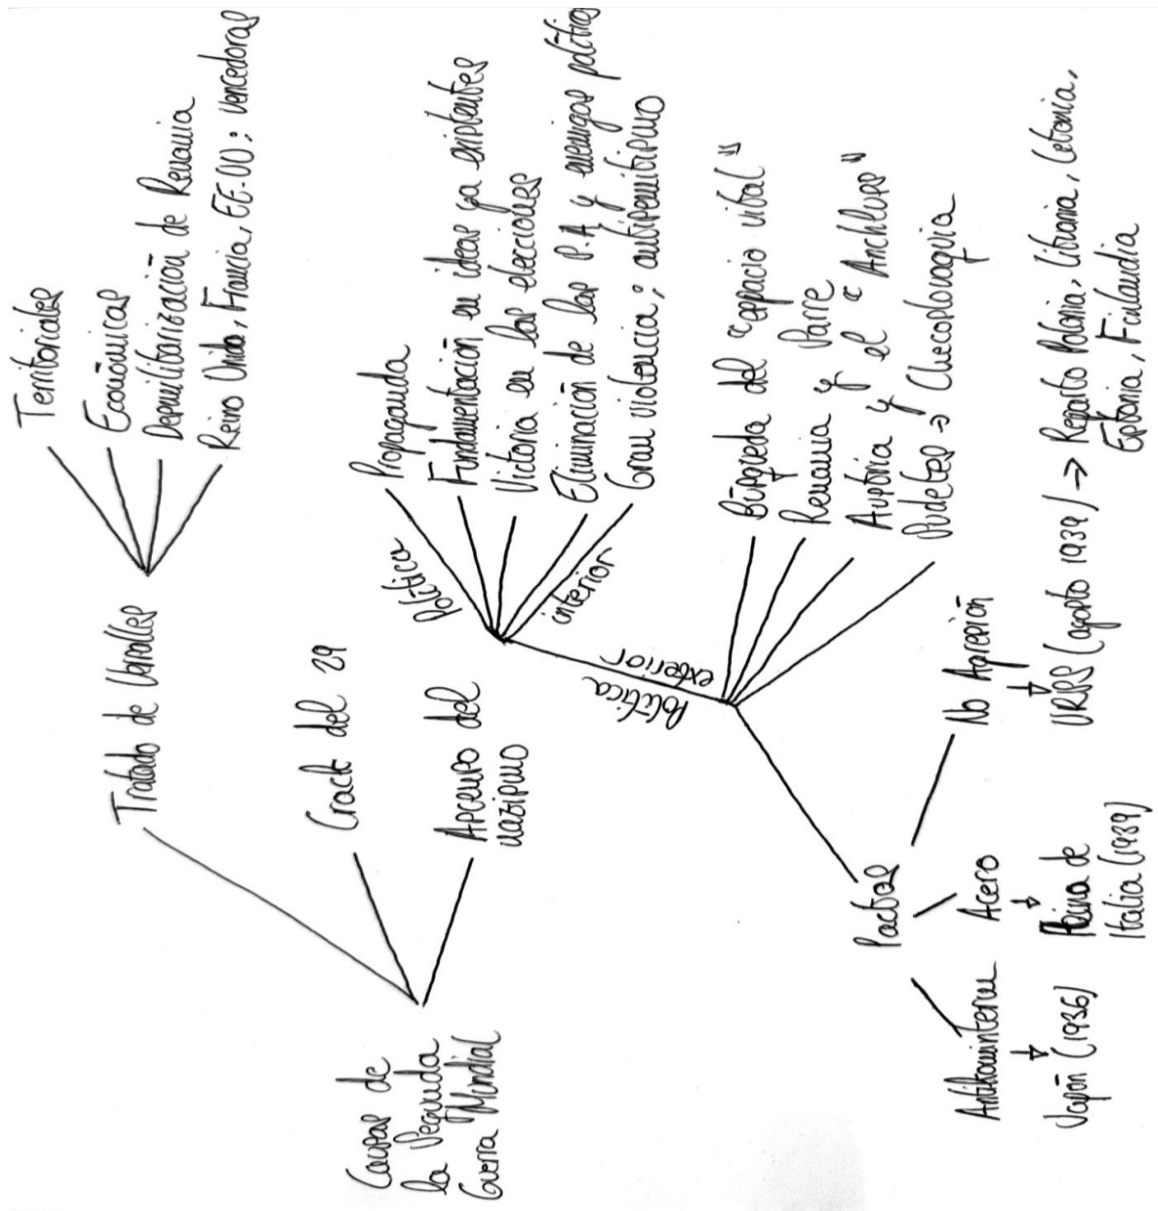 Causas de
la Segunda
Guerra Mundial
Tratado de Versalles
Territoriales
Económicas
Desmilitarización de Renania
Reino Unido, Francia, EE.UU: vencedoras
Crack del 29
Ascenso del
nazismo
Política
interior
Propaganda
Fundamentación en ideas ya existentes
Victoria en las elecciones
Eliminación de las S.A y enemigos políticos
Gran violencia; antisemitismo
Política
exterior
Búsqueda del "espacio vital"
Renania y Sarre
Austria y el "Anchluss"
Sudetes → Checoslovaquia
Pactos
Antikomintern
↓
Japón (1936)
Acero
↓
Italia (1939)
No Agresión
↓
URSS (agosto 1939) → Reparto Polonia, Lituania, Letonia,
Estonia, Finlandia